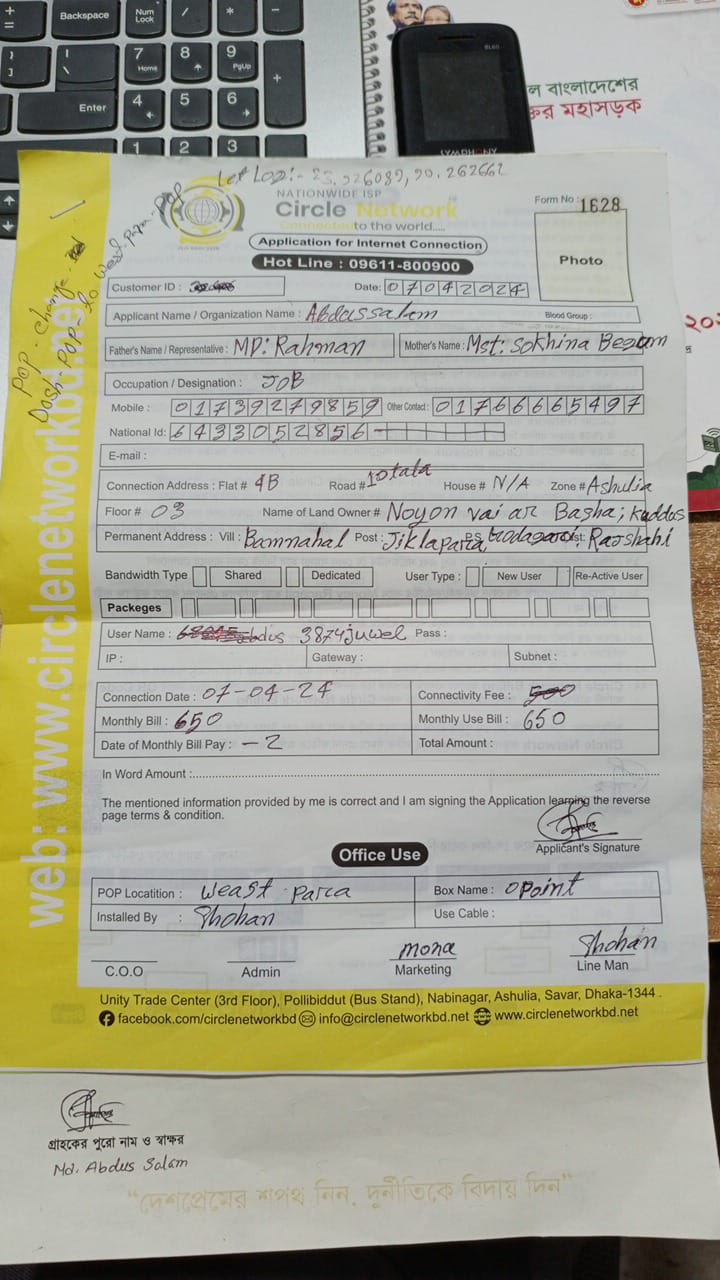 Backspace
Num Lock
/
*
-
7 Home
8
9 PgUp
+
Enter
4
5
6
1
2
3
BL60
SYMPHONY
ল বাংলাদেশের
মহাসড়ক
Lat Lop:- 23.926089, 90.262662
NATIONWIDE ISP
Circle Network
Connected to the world.....
Form No : 1628
Application for Internet Connection
Hot Line : 09611-800900
Photo
POP - Change
Dash-POP- to West Para-POP
web: www.circlenetworkbd.net
Customer ID :
Date: 07042024
Applicant Name / Organization Name : Abdassalam
Blood Group :
Father's Name / Representative : MD: Rahman
Mother's Name : Mst: Sokhina Begam
Occupation / Designation : JOB
Mobile : 01739279859 Other Contact : 01766665497
National Id: 6433052856
E-mail :
Connection Address : Flat # 4B Road # 10tala House # N/A Zone # Ashulia
Floor # 03 Name of Land Owner # Noyon vai ar Basha; Kuddos
Permanent Address : Vill : Bamnahal Post : Jiklapara, P.S. Dist: Rajshahi
Bandwidth Type Shared Dedicated User Type : New User Re-Active User
Packeges
User Name : 3874juwel Pass :
IP : Gateway : Subnet :
Connection Date : 07-04-24 Connectivity Fee : 500
Monthly Bill : 650 Monthly Use Bill : 650
Date of Monthly Bill Pay : -2 Total Amount :
In Word Amount :
The mentioned information provided by me is correct and I am signing the Application learning the reverse
page terms & condition.
Applicant's Signature
Office Use
POP Locatition : Weast Parca Box Name : Opoint
Installed By : Shohan Use Cable :
mona
Shohan
C.O.O Admin Marketing Line Man
Unity Trade Center (3rd Floor), Pollibiddut (Bus Stand), Nabinagar, Ashulia, Savar, Dhaka-1344 .
facebook.com/circlenetworkbd info@circlenetworkbd.net www.circlenetworkbd.net
গ্রাহকের পুরো নাম ও স্বাক্ষর
Md. Abdus Salam
“দেশপ্রেমের শপথ নিন, দুর্নীতিকে বিদায় দিন”